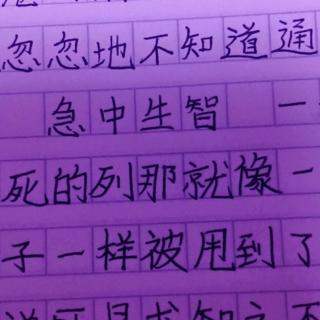 忽忽地不知道通
急中生智 一
死的列那就像一
子一样被甩到了